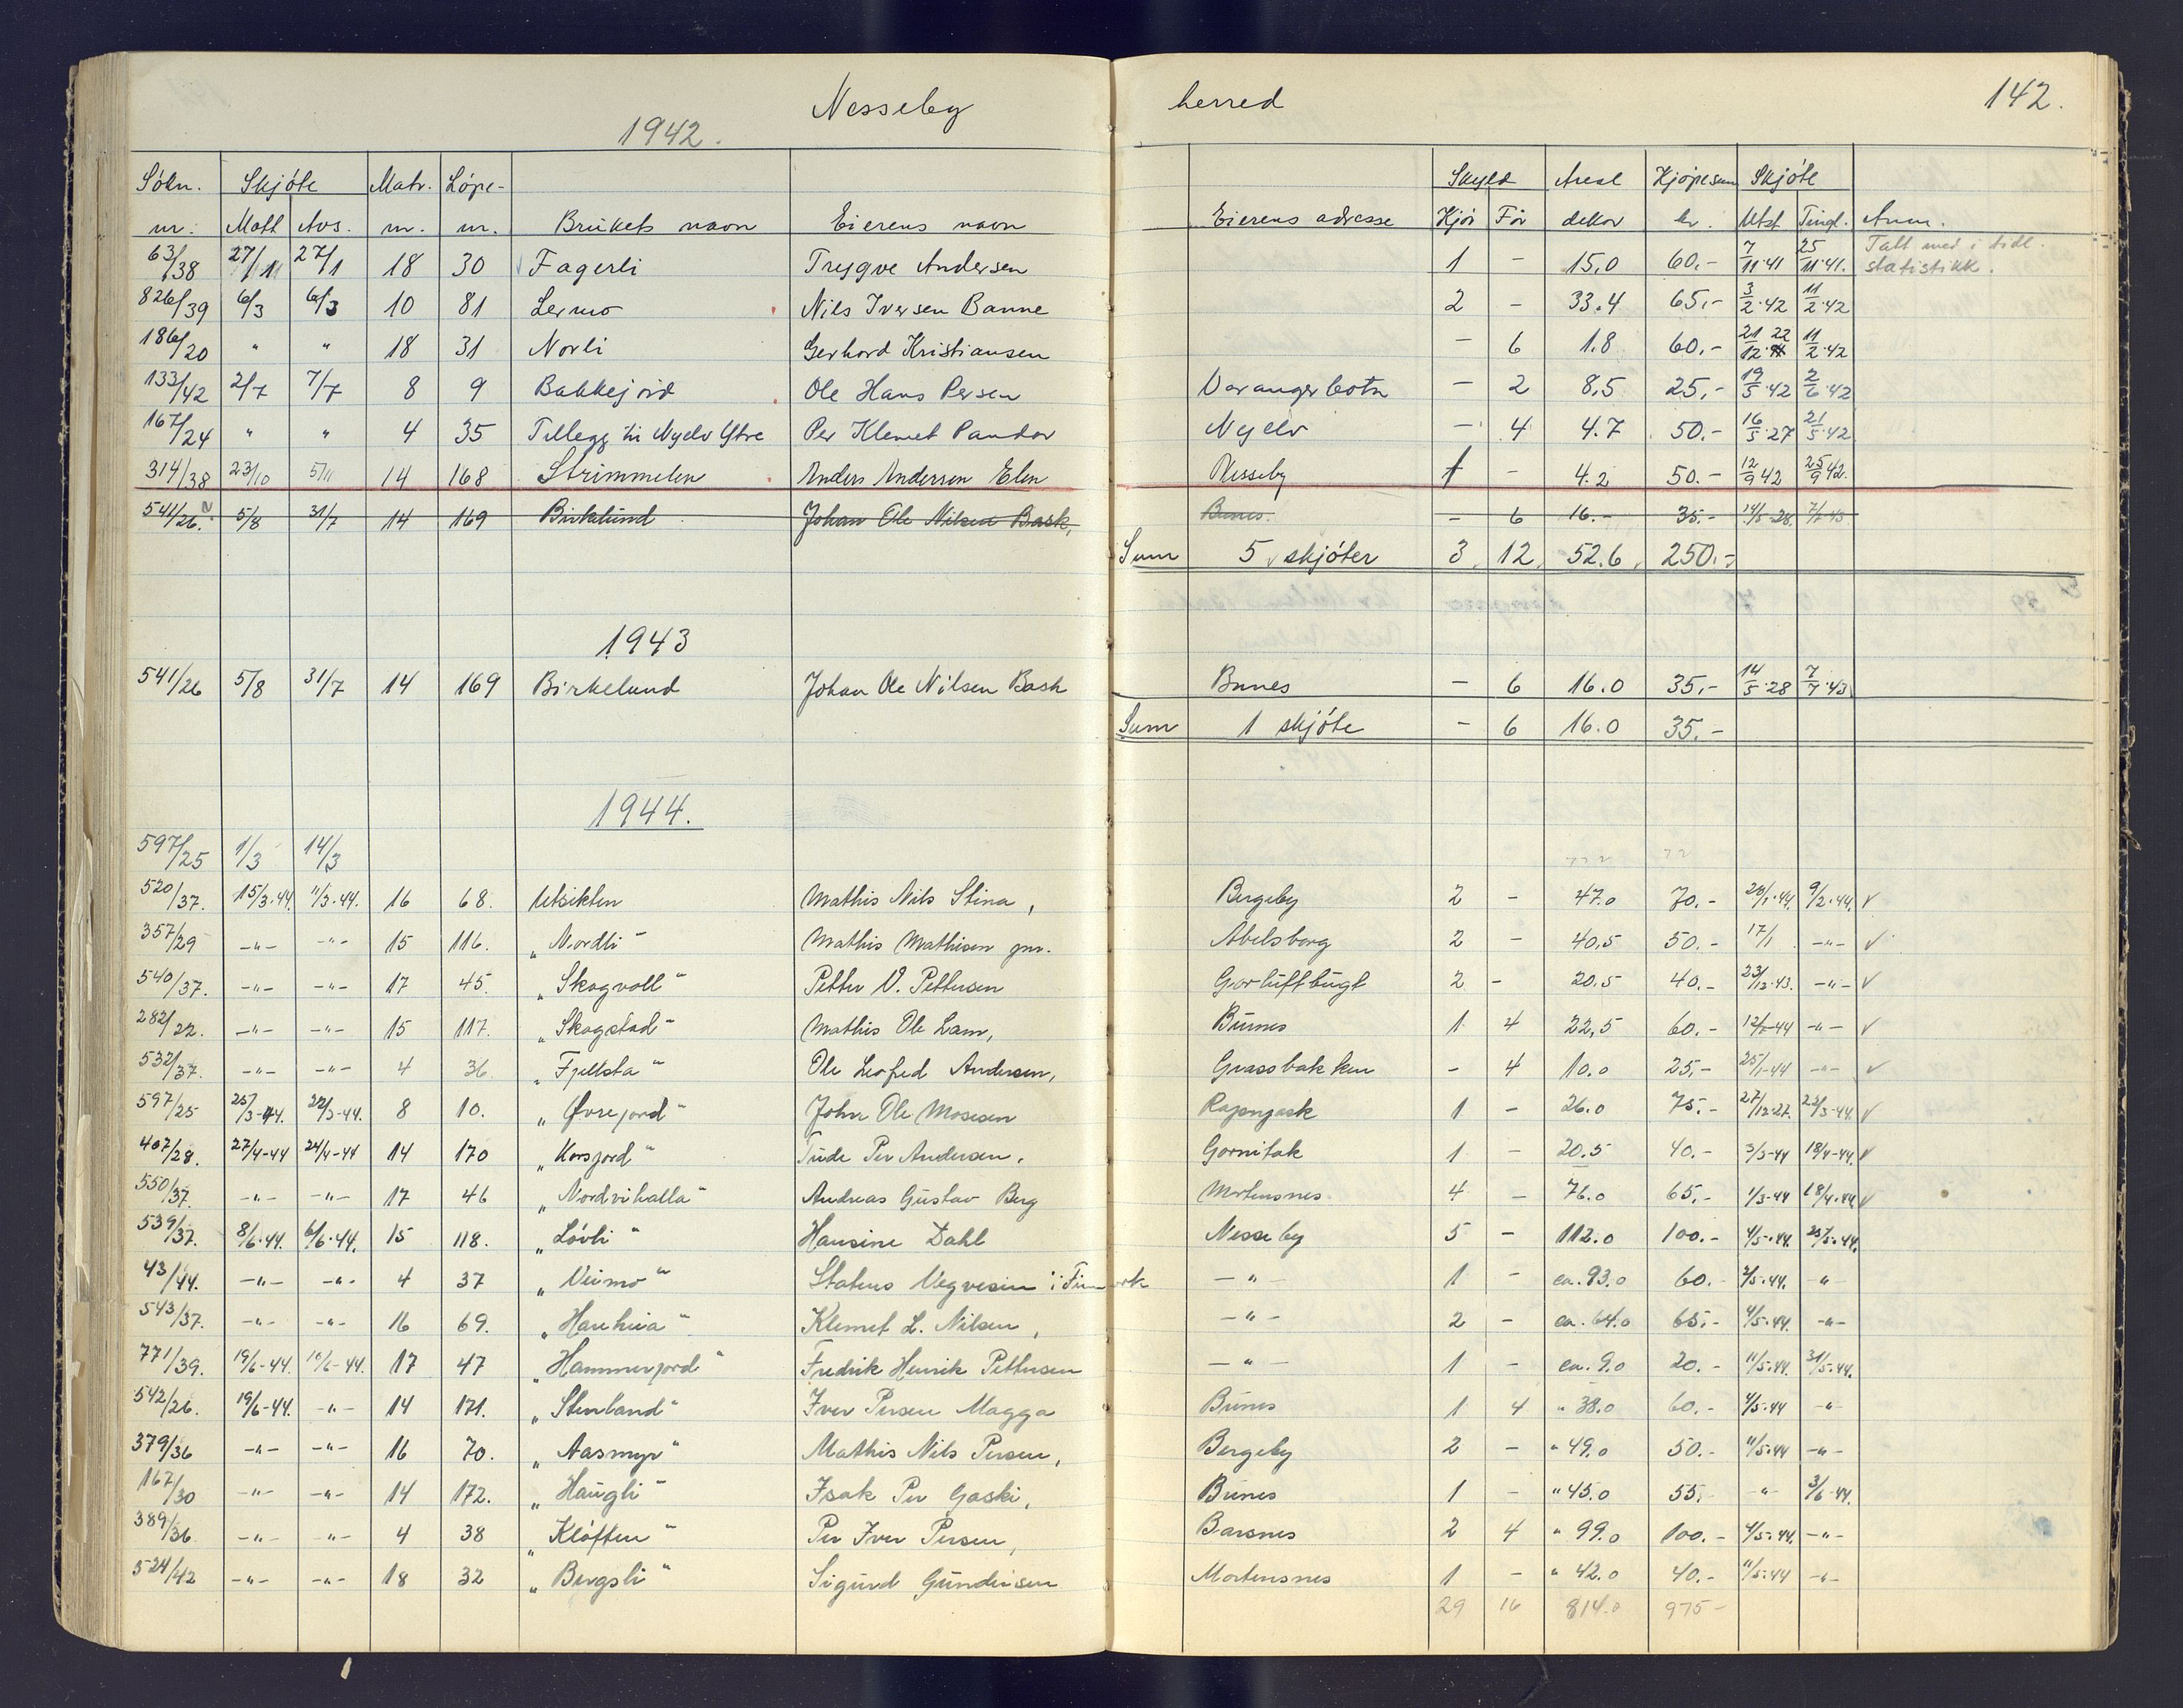 Nesseby herred 142.
1942.
Sökn. Skjöte Matr. Löpe- Skyld Areal Kjöpesum Skjöte
nr. Mott Avs. nr. nr. Brukets navn Eierens navn Eierens adresse Kjör För dekar kr. Utst. Tingl. Anm.
63/38 27/11 27/1 18 30 Fagerli Trygve Andersen 1 - 15,0 60.- 7/11.41 25/11.41. Tatt med i tidl. statistikk.
826/39 6/3 6/3 10 81 Lermo Nils Iversen Banne 2 - 33.4 65,- 3/2.42 11/2.42
186/20 " " 18 31 Norli Gerhard Kristiansen - 6 1.8 60.- 21/12 22 11/2.42
133/42 2/7 7/7 8 9 Bakkejord Ole Hans Persen Varangerbotn - 2 8,5 25,- 19/5.42 2/6.42
167/24 " " 4 35 Tillegg til Nyelv Ytre Per Klemet Pandor Nyelv - 4 4.7 50.- 16/5.27 21/5.42
314/38 23/10 5/11 14 168 Strimmelen Anders Andersen Elen Nesseby 1 - 4.2 50.- 12/9 42 25/9 42.
541/26. 5/8 31/7 14 169 Birklund Johan Ole Nilsen Bask, Bunes. - 6 16.- 35.- 14/5-28. 7/7-43
Sum 5 skjöter 3 12 52.6 250.-
1943
541/26 5/8 31/7 14 169 Birkelund Johan Ole Nilsen Bask Bunes - 6 16.0 35,- 14/5.28 7/7.43
Sum 1 skjöte - 6 16.0 35.-
1944.
597/25 1/3 14/3
520/37. 15/3.44. 11/3.44. 16 68. Utsikten Mathis Nils Stina, Bergeby 2 - 47.0 70.- 20/1.44. 9/2.44. v
357/29 -"- -"- 15 116. "Nordli" Mathis Mathisen jnr. Abelsborg 2 - 40,5 50.- 17/1 -"- v
540/37. -"- -"- 17 45. "Skogvoll" Petter V. Pettersen Gorluftbugt 2 - 20.5 40.- 23/12.43. -"- v
282/22. -"- -"- 15 117. "Skogstad" Mathis Ole Lam, Bunes 1 4 22,5 60.- 12/1-44 -"- v
532/37. -"- -"- 4 36. "Fjellsta" Ole Leofred Andersen, Grassbakken - 4 10.0 25,- 25/1-44 -"- v
597/25 25/3-44. 22/3-44. 8 10. "Øvrejord" John Ole Mosesen 1 - 26.0 75.- 27/12.27. 22/3-44. v
407/28. 27/4-44 24/4-44 14 170 "Korsjord" Tude Per Andersen, Gornitak 1 - 20.5 40.- 3/3-44 18/4-44. v
550/37. -"- -"- 17 46 "Nordvihalla" Andreas Gustav Berg Mortensnes 4 - 76.0 65,- 1/3-44 18/4.44. v
539/37. 8/6.44. 6/6.44. 15 118. "Lövli" Hansine Dahl Nesseby 5 - 112.0 100.- 4/5-44. 23/5.44.
43/44. -"- -"- 4 37 "Veimo" Statens Vegvesen i Finmark -"- 1 - ca. 93.0 60.- 2/5.44. -"-
543/37. -"- -"- 16 69. Klemet L. Nilsen, -"- 2 - ca. 64.0 65,- 4/5.44. -"-
771/39. 19/6-44. 10/6-44. 17 47 "Hammerjord" Fredrik Henrik Pettersen -"- 1 - ca. 9.0 20.- 11/5.44. 31/5.44.
542/26. 19/6-44. -"- 14 171. "Stenland" Iver Persen Magga Bunes 1 4 " 38.0 60.- 4/5.44 -"-
379/36 -"- -"- 16 70. "Aasmyr" Mathis Nils Persen, Bergeby 2 - " 49.0 50.- 11/5.44 -"-
167/30 -"- -"- 14 172. "Haugli" Isak Per Gaski, Bunes 1 - " 45.0 55,- -"- 3/6-44.
389/36 -"- -"- 4 38 "Klöften" Per Iver Persen, Barsnes 2 4 " 99.0 100.- 4/5-44. -"-
524/42 -"- -"- 18 32 "Bergsli" Sigurd Gundersen Mortensnes 1 - " 42.0 40.- 11/5.44 -"-
29 16 814.0 975-